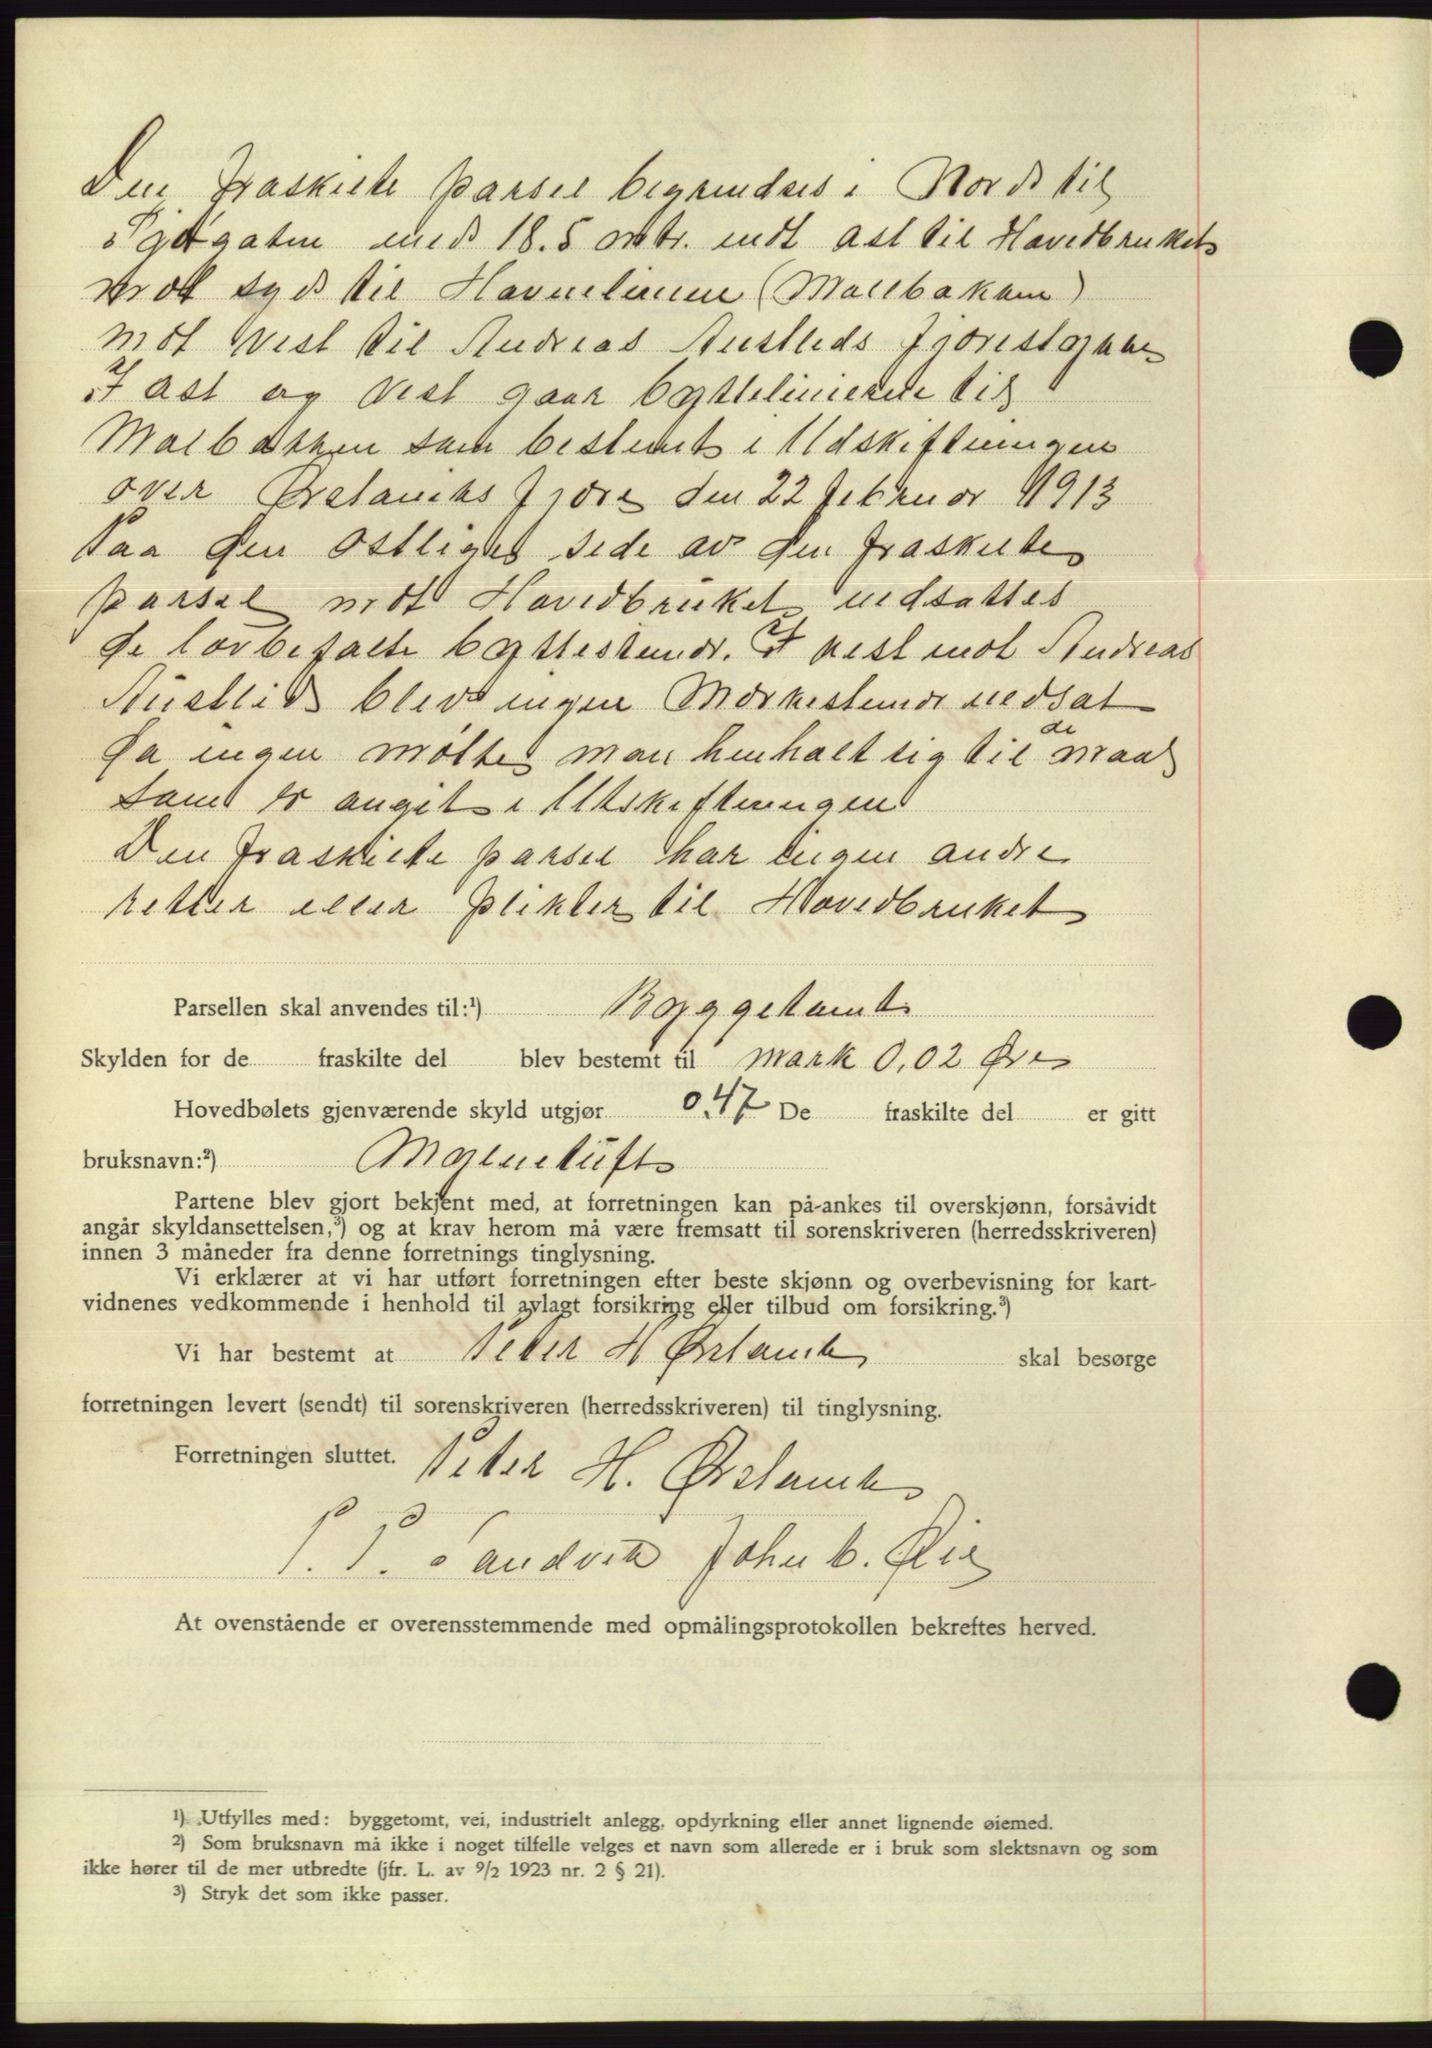 Den fraskilte parsel begrendses i Nord til
Sjøgaten med 18.5 mtr. mot ast til Havedbruket
mot syd til Havnelinien (Marebakken)
mot Vest til Andreas Austlids fjørestykke
I ast og Vest gaar byttelinierne til
Marbakken som bestemt i Udskiftningen
over Ørstaviks fjøre den 22 februar 1913
Paa den ostlige side av den fraskilte
parsel mot Havedbruket nedsattes
de lovbefalte byttestener. I vest mot Andreas
Austlid blev ingen Merkestener nedsat
da ingen møtte man henholt sig til de maal
som er angit i Utskiftningen
Den fraskilte parsel har ingen andre
retter eller plikter til Hovedbruket
Parsellen skal anvendes til:¹) Byggetomt
Skylden for de fraskilte del blev bestemt til mark 0,02 Øre
Hovedbølets gjenværende skyld utgjør 0,47 De fraskilte del er gitt
bruksnavn:²)
Partene blev gjort bekjent med, at forretningen kan på-ankes til overskjønn, forsåvidt
angår skyldansettelsen,³) og at krav herom må være fremsatt til sorenskriveren (herredsskriveren)
innen 3 måneder fra denne forretnings tinglysning.
Vi erklærer at vi har utført forretningen efter beste skjønn og overbevisning for kart-
vidnenes vedkommende i henhold til avlagt forsikring eller tilbud om forsikring.³)
Vi har bestemt at Peter H Ørstavik skal besørge
forretningen levert (sendt) til sorenskriveren (herredsskriveren) til tinglysning.
Forretningen sluttet. Peter H. Ørstavik
P. P. Sandvik John C. Øie
At ovenstående er overensstemmende med opmålingsprotokollen bekreftes herved.
¹) Utfylles med: byggetomt, vei, industrielt anlegg, opdyrkning eller annet lignende øiemed.
²) Som bruksnavn må ikke i noget tilfelle velges et navn som allerede er i bruk som slektsnavn og som
ikke hører til de mer utbredte (jfr. L. av 9/2 1923 nr. 2 § 21).
³) Stryk det som ikke passer.